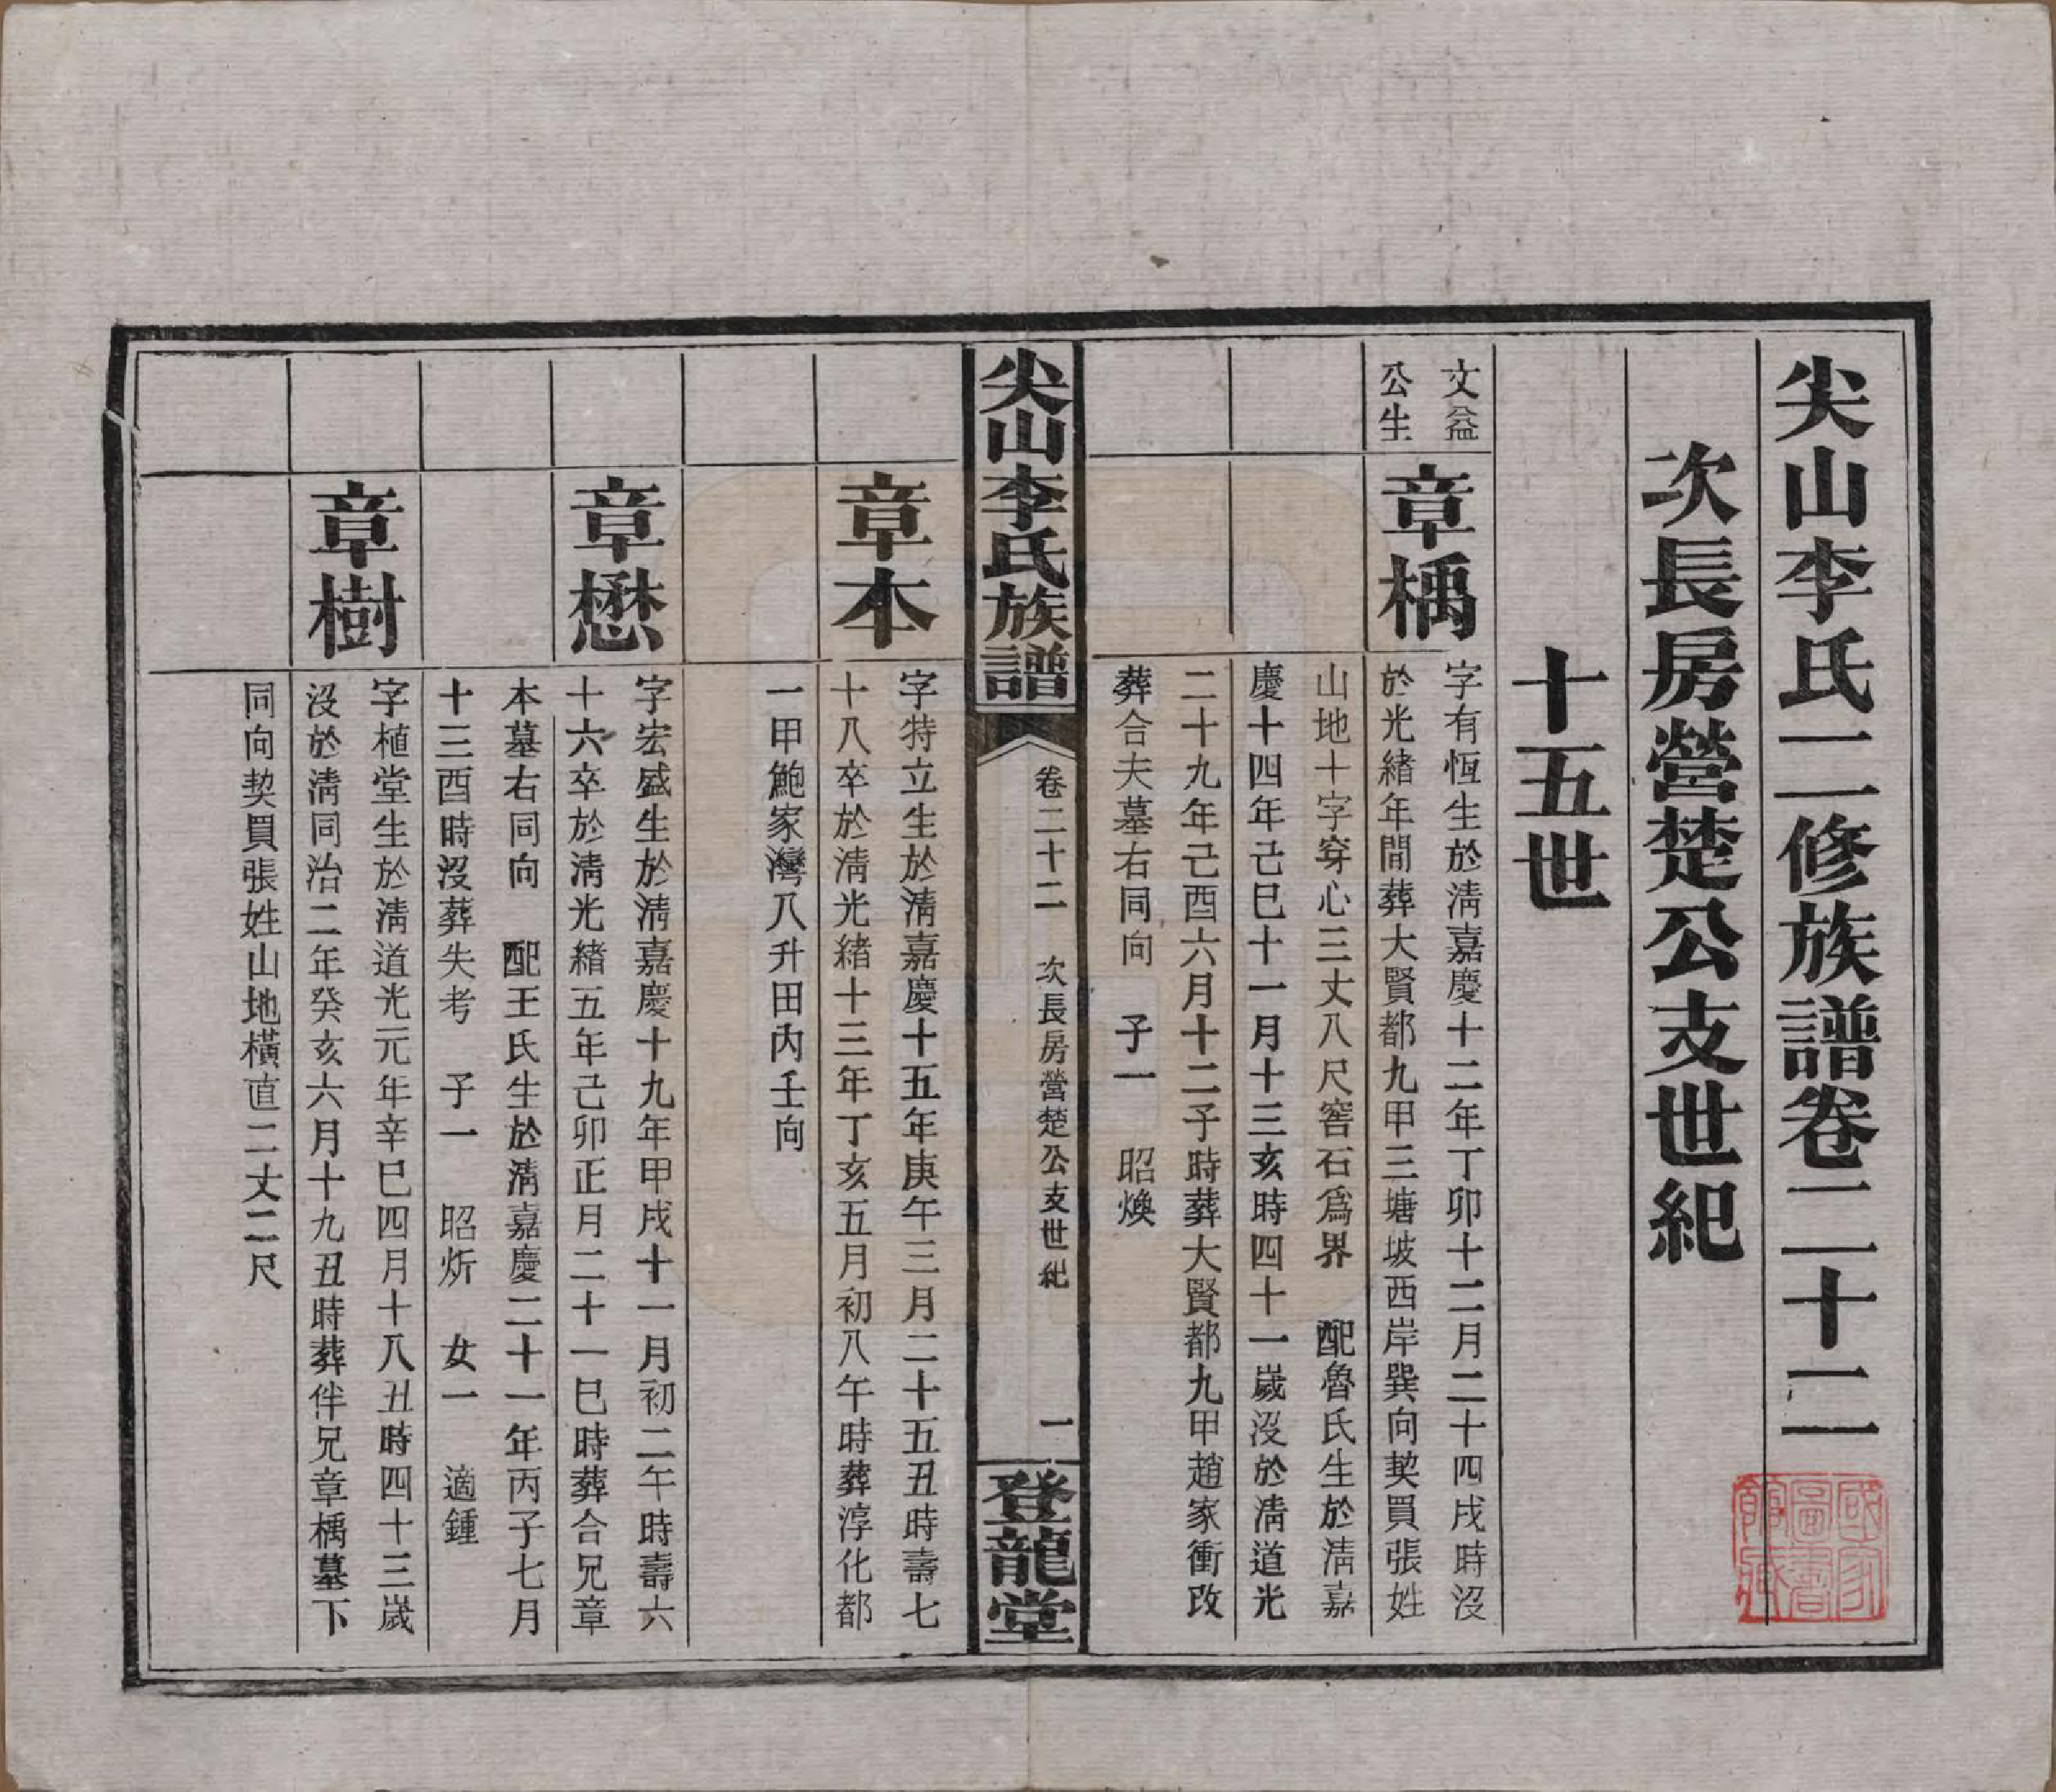 尖山李氏二修族譜卷二十二
次長房營楚公支世紀
十五世
文益
公生
章楀
字有恆生於淸嘉慶十二年丁卯十二月二十四戌時沒
於光緖年間葬大賢都九甲三塘坡西岸巽向契買張姓
山地十字穿心三丈八尺窖石爲界　配魯氏生於淸嘉
慶十四年己巳十一月十三亥時四十一歲沒於淸道光
二十九年己酉六月十二子時葬大賢都九甲趙家衝改
葬合夫墓右同向　子一　昭煥
尖山李氏族譜
卷二十二　次長房營楚公支世紀
一
登龍堂
章本
字特立生於淸嘉慶十五年庚午三月二十五丑時壽七
十八卒於淸光緖十三年丁亥五月初八午時葬淳化都
一甲鮑家灣八升田內壬向
章懋
字宏盛生於淸嘉慶十九年甲戌十一月初二午時壽六
十六卒於淸光緖五年己卯正月二十一巳時葬合兄章
本墓右同向　配王氏生於淸嘉慶二十一年丙子七月
十三酉時沒葬失考　子一　昭炘　女一　適鍾
章樹
字植堂生於淸道光元年辛巳四月十八丑時四十三歲
沒於淸同治二年癸亥六月十九丑時葬伴兄章楀墓下
同向契買張姓山地橫直二丈二尺
國家
圖書
館藏